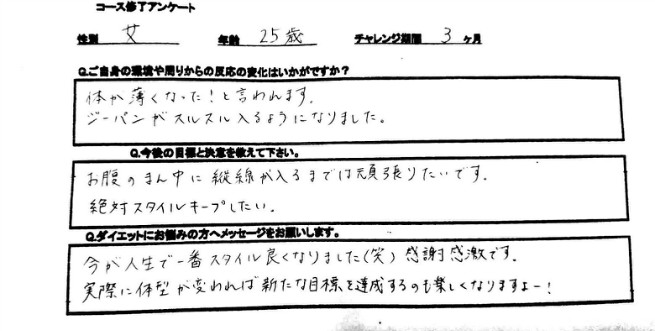 コース修了アンケート
性別 女 年齢 25歳 チャレンジ期間 3 ヶ月
Q.ご自身の環境や周りからの反応の変化はいかがですか？
体が薄くなった！と言われます。
ジーパンがスルスル入るようになりました。
Q.今後の目標と決意を教えて下さい。
お腹のまん中に縦線が入るまでは頑張りたいです。
絶対スタイルキープしたい。
Q.ダイエットにお悩みの方へメッセージをお願いします。
今が人生で一番スタイル良くなりました(笑)感謝感激です。
実際に体型が変われば新たな目標を達成するのも楽しくなりますよー！